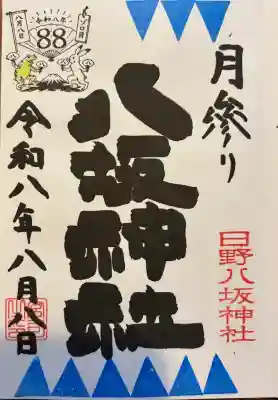 月参り
八坂神社
日野八坂神社
令和八年八月八日
令和八年
八月八日
ゾロ目
88